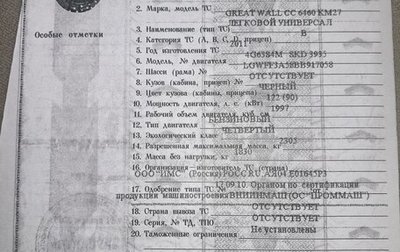 2. Марка, модель ТС
GREAT WALL CC 6460 KM27
Особые отметки
3. Наименование (тип ТС)
ЛЕГКОВОЙ УНИВЕРСАЛ
4. Категория ТС (А, В, С, D, прицеп)
B
5. Год изготовления ТС
2011
6. Модель, № двигателя
4G63S4M SKD 3935
7. Шасси (рама) №
LGWFF3A58BB917058
8. Кузов (кабина, прицеп) №
ОТСУТСТВУЕТ
9. Цвет кузова (кабины, прицепа)
ЧЕРНЫЙ
10. Мощность двигателя, л. с. (кВт)
122 (90)
11. Рабочий объем двигателя, куб. см
1997
12. Тип двигателя
БЕНЗИНОВЫЙ
13. Экологический класс
ЧЕТВЕРТЫЙ
14. Разрешенная максимальная масса, кг
2305
15. Масса без нагрузки, кг
1830
16. Организация-изготовитель ТС (страна)
ООО"ИМС" (Россия)
17. Одобрение типа ТС №
РОСС RU.АЯ04.Е01645Р3
13.09.10. Органом по сертификации
продукции машиностроения ВНИИНМАШ(ОС"ПРОММАШ")
18. Страна вывоза ТС
ОТСУТСТВУЕТ
19. Серия, № ТД, ТПО
ОТСУТСТВУЕТ
20. Таможенные ограничения
Не установлены